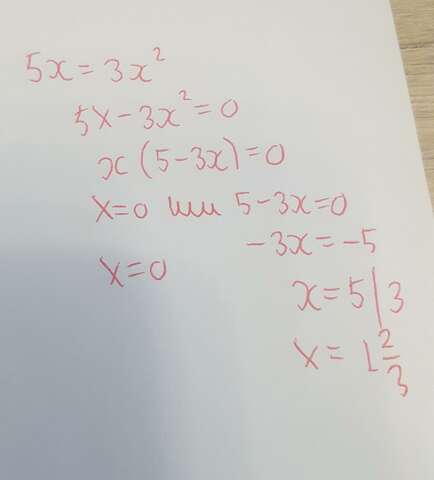 5x = 3x²
5x - 3x² = 0
x (5 - 3x) = 0
x = 0 или 5 - 3x = 0
-3x = -5
x = 0
x = 5 | 3
x = 1 2/3